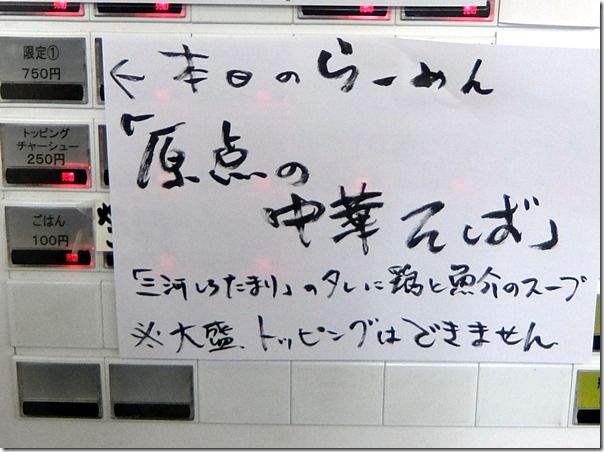 限定①
750円
トッピング
チャーシュー
250円
ごはん
100円
←本日のらーめん
「原点の
中華そば」
「三河しろたまり」のタレに鶏と魚介のスープ
※大盛、トッピングはできません